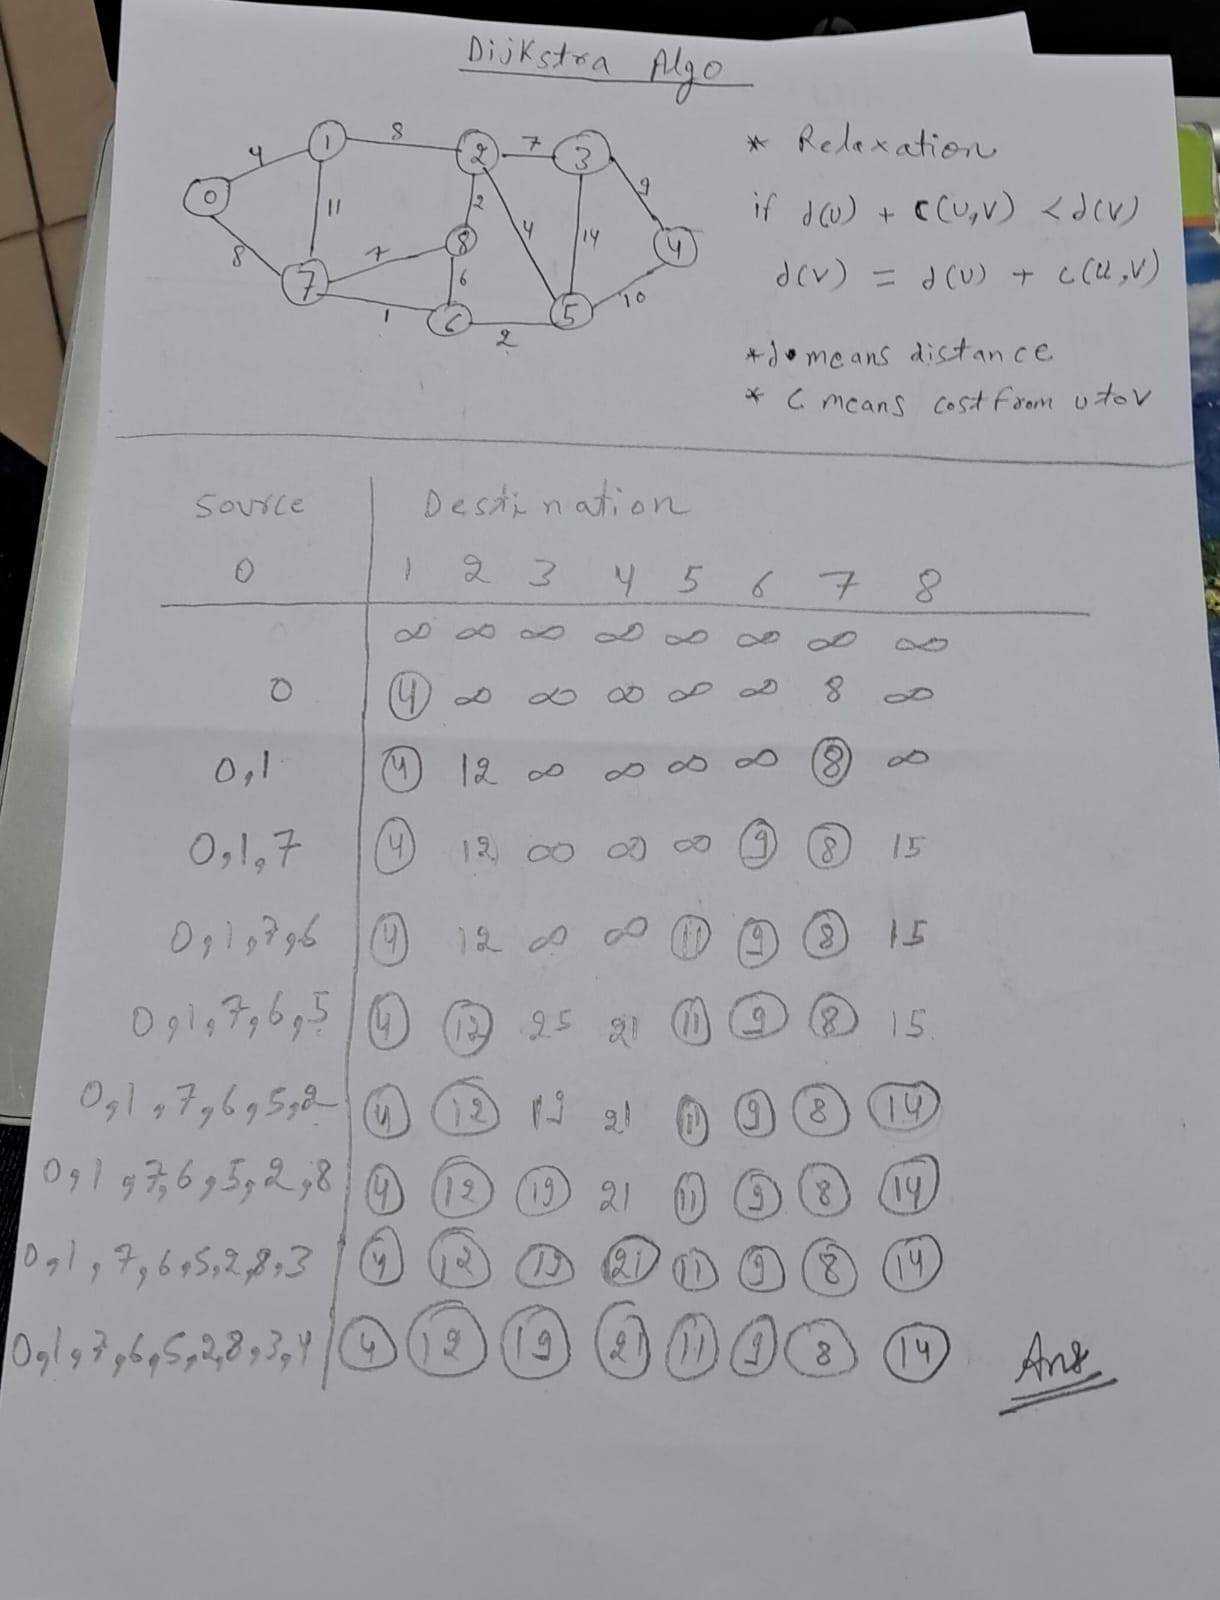 Dijkstra Algo
4 1 8 2 7 3
0 11 2 4 14 9
8 7 7 8 6 5 4
1 6 2 10
* Relaxation
if d(u) + c(u,v) < d(v)
d(v) = d(u) + c(u,v)
* d means distance
* C means cost from u to v
Source Destination
0 1 2 3 4 5 6 7 8
∞ ∞ ∞ ∞ ∞ ∞ ∞ ∞
0 4 ∞ ∞ ∞ ∞ ∞ 8 ∞
0,1 4 12 ∞ ∞ ∞ ∞ 8 ∞
0,1,7 4 12 ∞ ∞ ∞ 9 8 15
0,1,7,6 4 12 ∞ ∞ 11 9 8 15
0,1,7,6,5 4 12 25 21 11 9 8 15
0,1,7,6,5,2 4 12 19 21 11 9 8 14
0,1,7,6,5,2,8 4 12 19 21 11 9 8 14
0,1,7,6,5,2,8,3 4 12 19 21 11 9 8 14
0,1,7,6,5,2,8,3,4 4 12 19 21 11 9 8 14 Ans